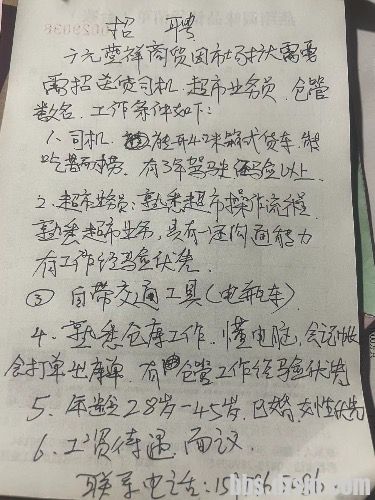 招聘
广元蓥祥商贸因市场扩大需要
需招送货司机、超市业务员、仓管
数名、工作条件如下:
1、司机、能开4.2米箱式货车、能
吃苦耐劳、有3年驾驶经验以上.
2、超市业务员:熟悉超市操作流程、
熟悉超市业务,具有一定沟通能力
有工作经验优先
③自带交通工具(电瓶车)
4、熟悉仓库工作、懂电脑、会记帐
会打单出库单、有仓管工作经验优先
5、年龄28岁-45岁、已婚、女性优先
6、工资待遇、面议
联系电话: